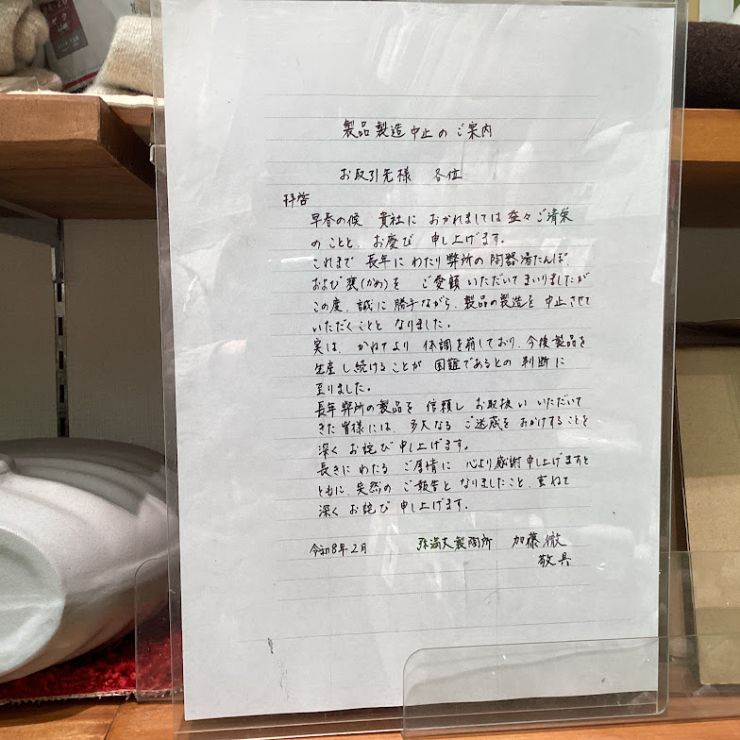 製品製造中止のご案内
お取引先様 各位
拝啓
早春の候 貴社に おかれましては 益々ご清栄
のことと お慶び 申し上げます。
これまで 長年に わたり 弊所の 陶器湯たんぽ
および 甕(かめ)を ご愛顧 いただいて まいりましたが
この度、誠に 勝手ながら、製品の製造を 中止させて
いただくことと なりました。
実は、かねてより 体調を崩しており、今後製品を
生産し続けることが 困難であるとの 判断に
至りました。
長年弊所の製品を 信頼し お取扱い いただいて
きた 皆様には、多大なる ご迷惑を おかけすることを
深く お詫び 申し上げます。
長きにわたる ご厚情に 心より感謝 申し上げますと
ともに、突然の ご報告と なりましたこと、重ねて
深く お詫び 申し上げます。
令和8年2月 弥満丈製陶所 加藤徹
敬具